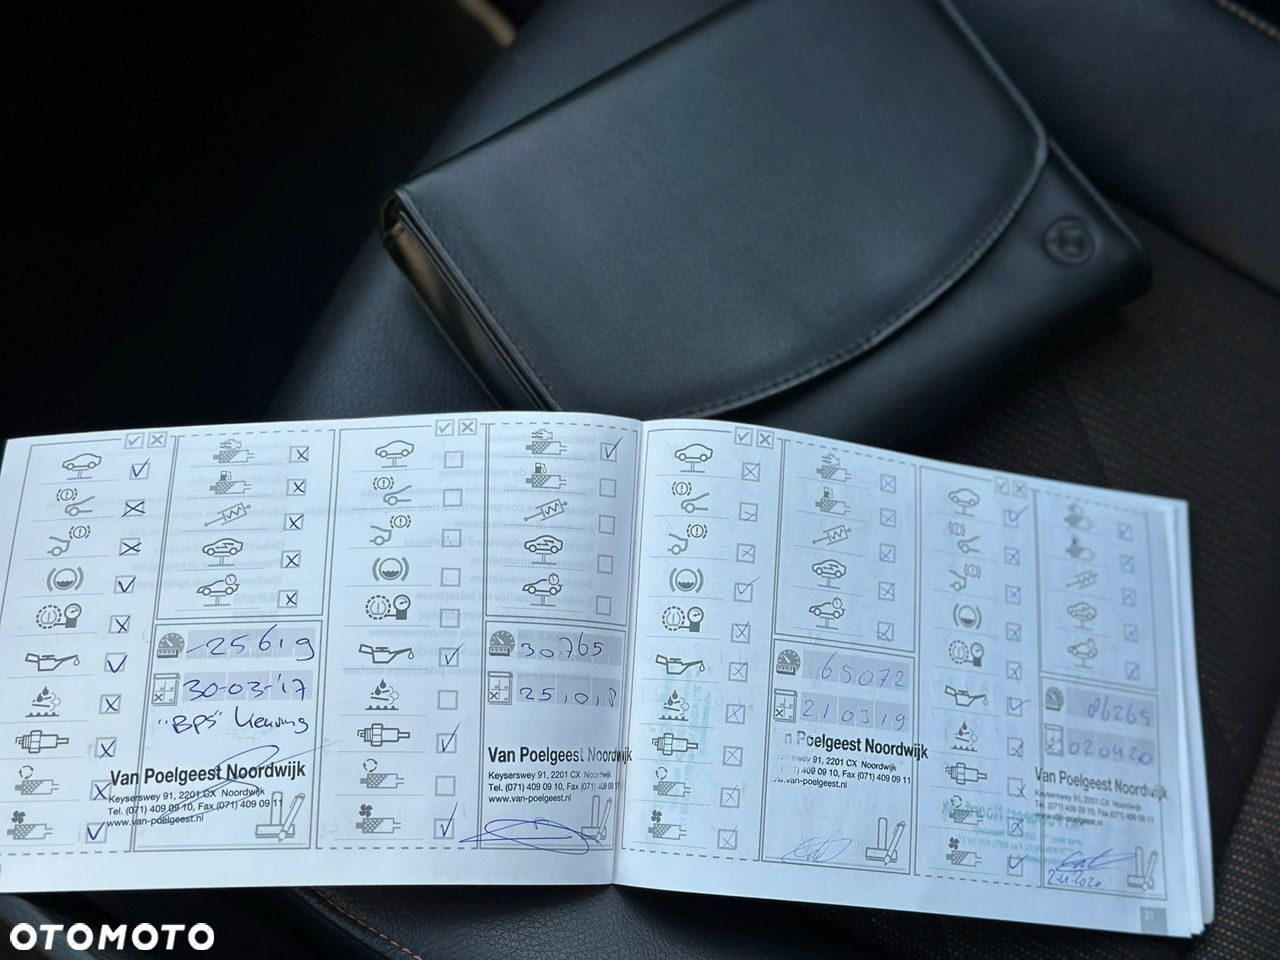 25619
30-03-'17
"BPS" Keuring
Van Poelgeest Noordwijk
Keyserswey 91, 2201 CX Noordwijk
Tel. (071) 409 09 10, Fax (071) 409 09 11
www.van-poelgeest.nl
30765
25,0,8
Van Poelgeest Noordwijk
Keyserswey 91, 2201 CX Noordwijk
Tel. (071) 409 09 10, Fax (071) 409 09 11
www.van-poelgeest.nl
65072
210319
Van Poelgeest Noordwijk
Keyserswey 91, 2201 CX Noordwijk
Tel. (071) 409 09 10, Fax (071) 409 09 11
www.van-poelgeest.nl
86265
020420
Van Poelgeest Noordwijk
Keyserswey 91, 2201 CX Noordwijk
Tel. (071) 409 09 10, Fax (071) 409 09 11
www.van-poelgeest.nl
2-4-2020
21
OTOMOTO